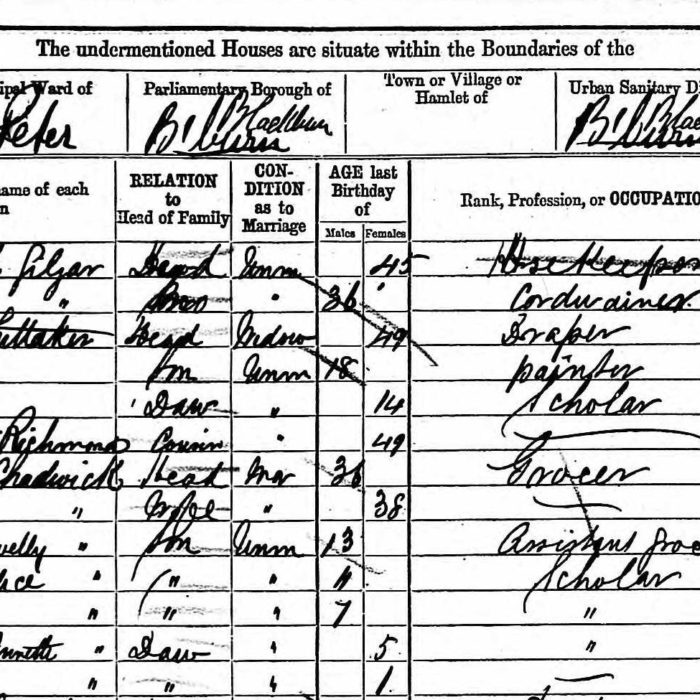 The undermentioned Houses are situate within the Boundaries of the
ipal Ward of Parliamentary Borough of Town or Village or Hamlet of Urban Sanitary Di
Peter Blackburn Blac
ame of each RELATION to Head of Family CON-DITION as to Marriage AGE last Birthday of Rank, Profession, or OCCUPATIO
n Males Females
Head Unm 45 Housekeeper
" Bro " 36 Cordwainer
ittaker Head Widow 49 Draper
Son Unm 18 painter
Daur " 14 Scholar
Richmond Cousin " 49
Chadwick Head Mar 36 Grocer
" Wife " 38
welly " Son Unm 13 Assistant groc
" " " 11 Scholar
" " " 7 "
nnette " Daur " 5 "
" " " 1